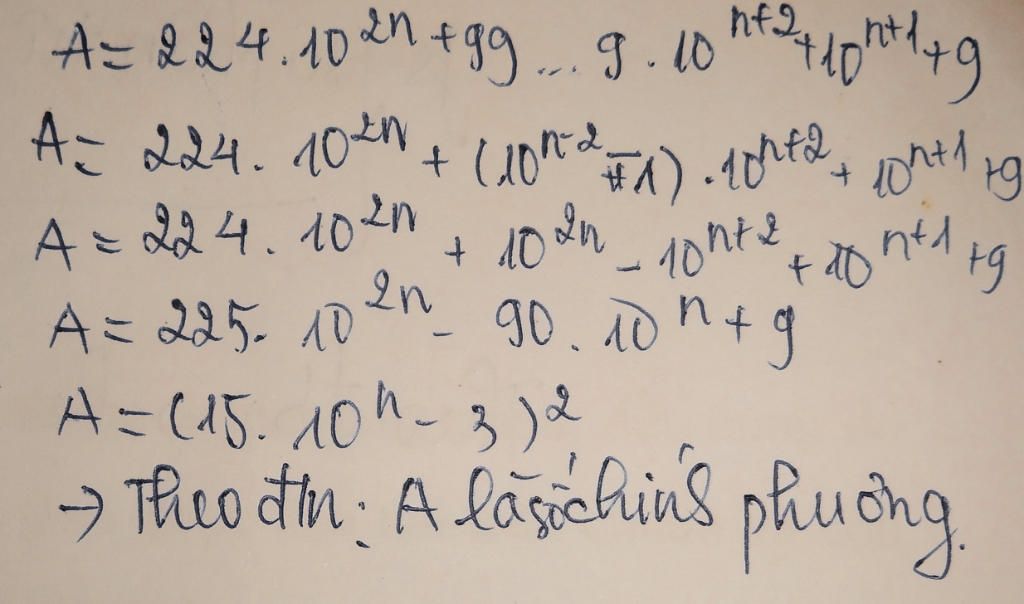 A = 224.10^{2n} + 99...9.10^{n+2} + 10^{n+1} + 9
A = 224.10^{2n} + (10^{n-2} - 1).10^{n+2} + 10^{n+1} + 9
A = 224.10^{2n} + 10^{2n} - 10^{n+2} + 10^{n+1} + 9
A = 225.10^{2n} - 90.10^n + 9
A = (15.10^n - 3)^2
→ Theo đ/n: A là số chính phương.